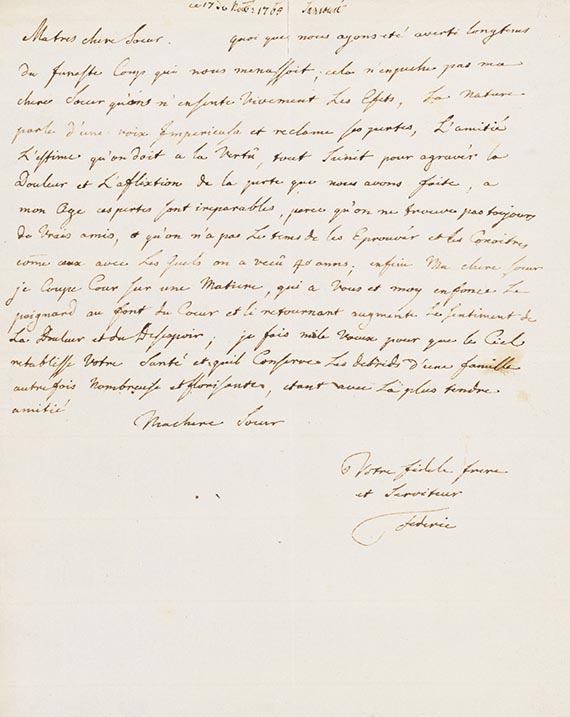 ce 17
Matres chere Soeur. quoi que nous ayons été averti longtems
du funeste Coup qui nous menassoit, cela n'enpeche pas ma
chere Soeur qu'ons n'en sente vivement Les Efets, La Nature
parle d'une voix Imperieuse et reclame ses pertes, L'amitié
L'estime qu'on doit a la Vertû, tout Sunit pour agravér la
Douleur et L'aflixtion de la perte que nous avons faite, a
mon Age ces pertes sont ireparables, parce qu'on ne trouve pas toujours
de Vrais amis, et qu'on n'a pas Le tems de les Eprouvér et les Conoitre,
come ceux avec Les quels on a vecû 40 anns; enfin Ma chere Soeur
je Coupe Cour sur une Matiere, qui a Vous et moy enfonce Le
poignard au font du Coeur et le retournant augmente Le sentiment de
La Douleur et du Desespoir; je fais mile Voeux pour que le Ciel
retablisse Votre Santé et qu'il Conserve Les debrids d'une famille
autre fois Nombreuse et florisante, etant avec La plus tendre
amitié
Machere Soeur
Votre fidele frere
et Serviteur
Federic